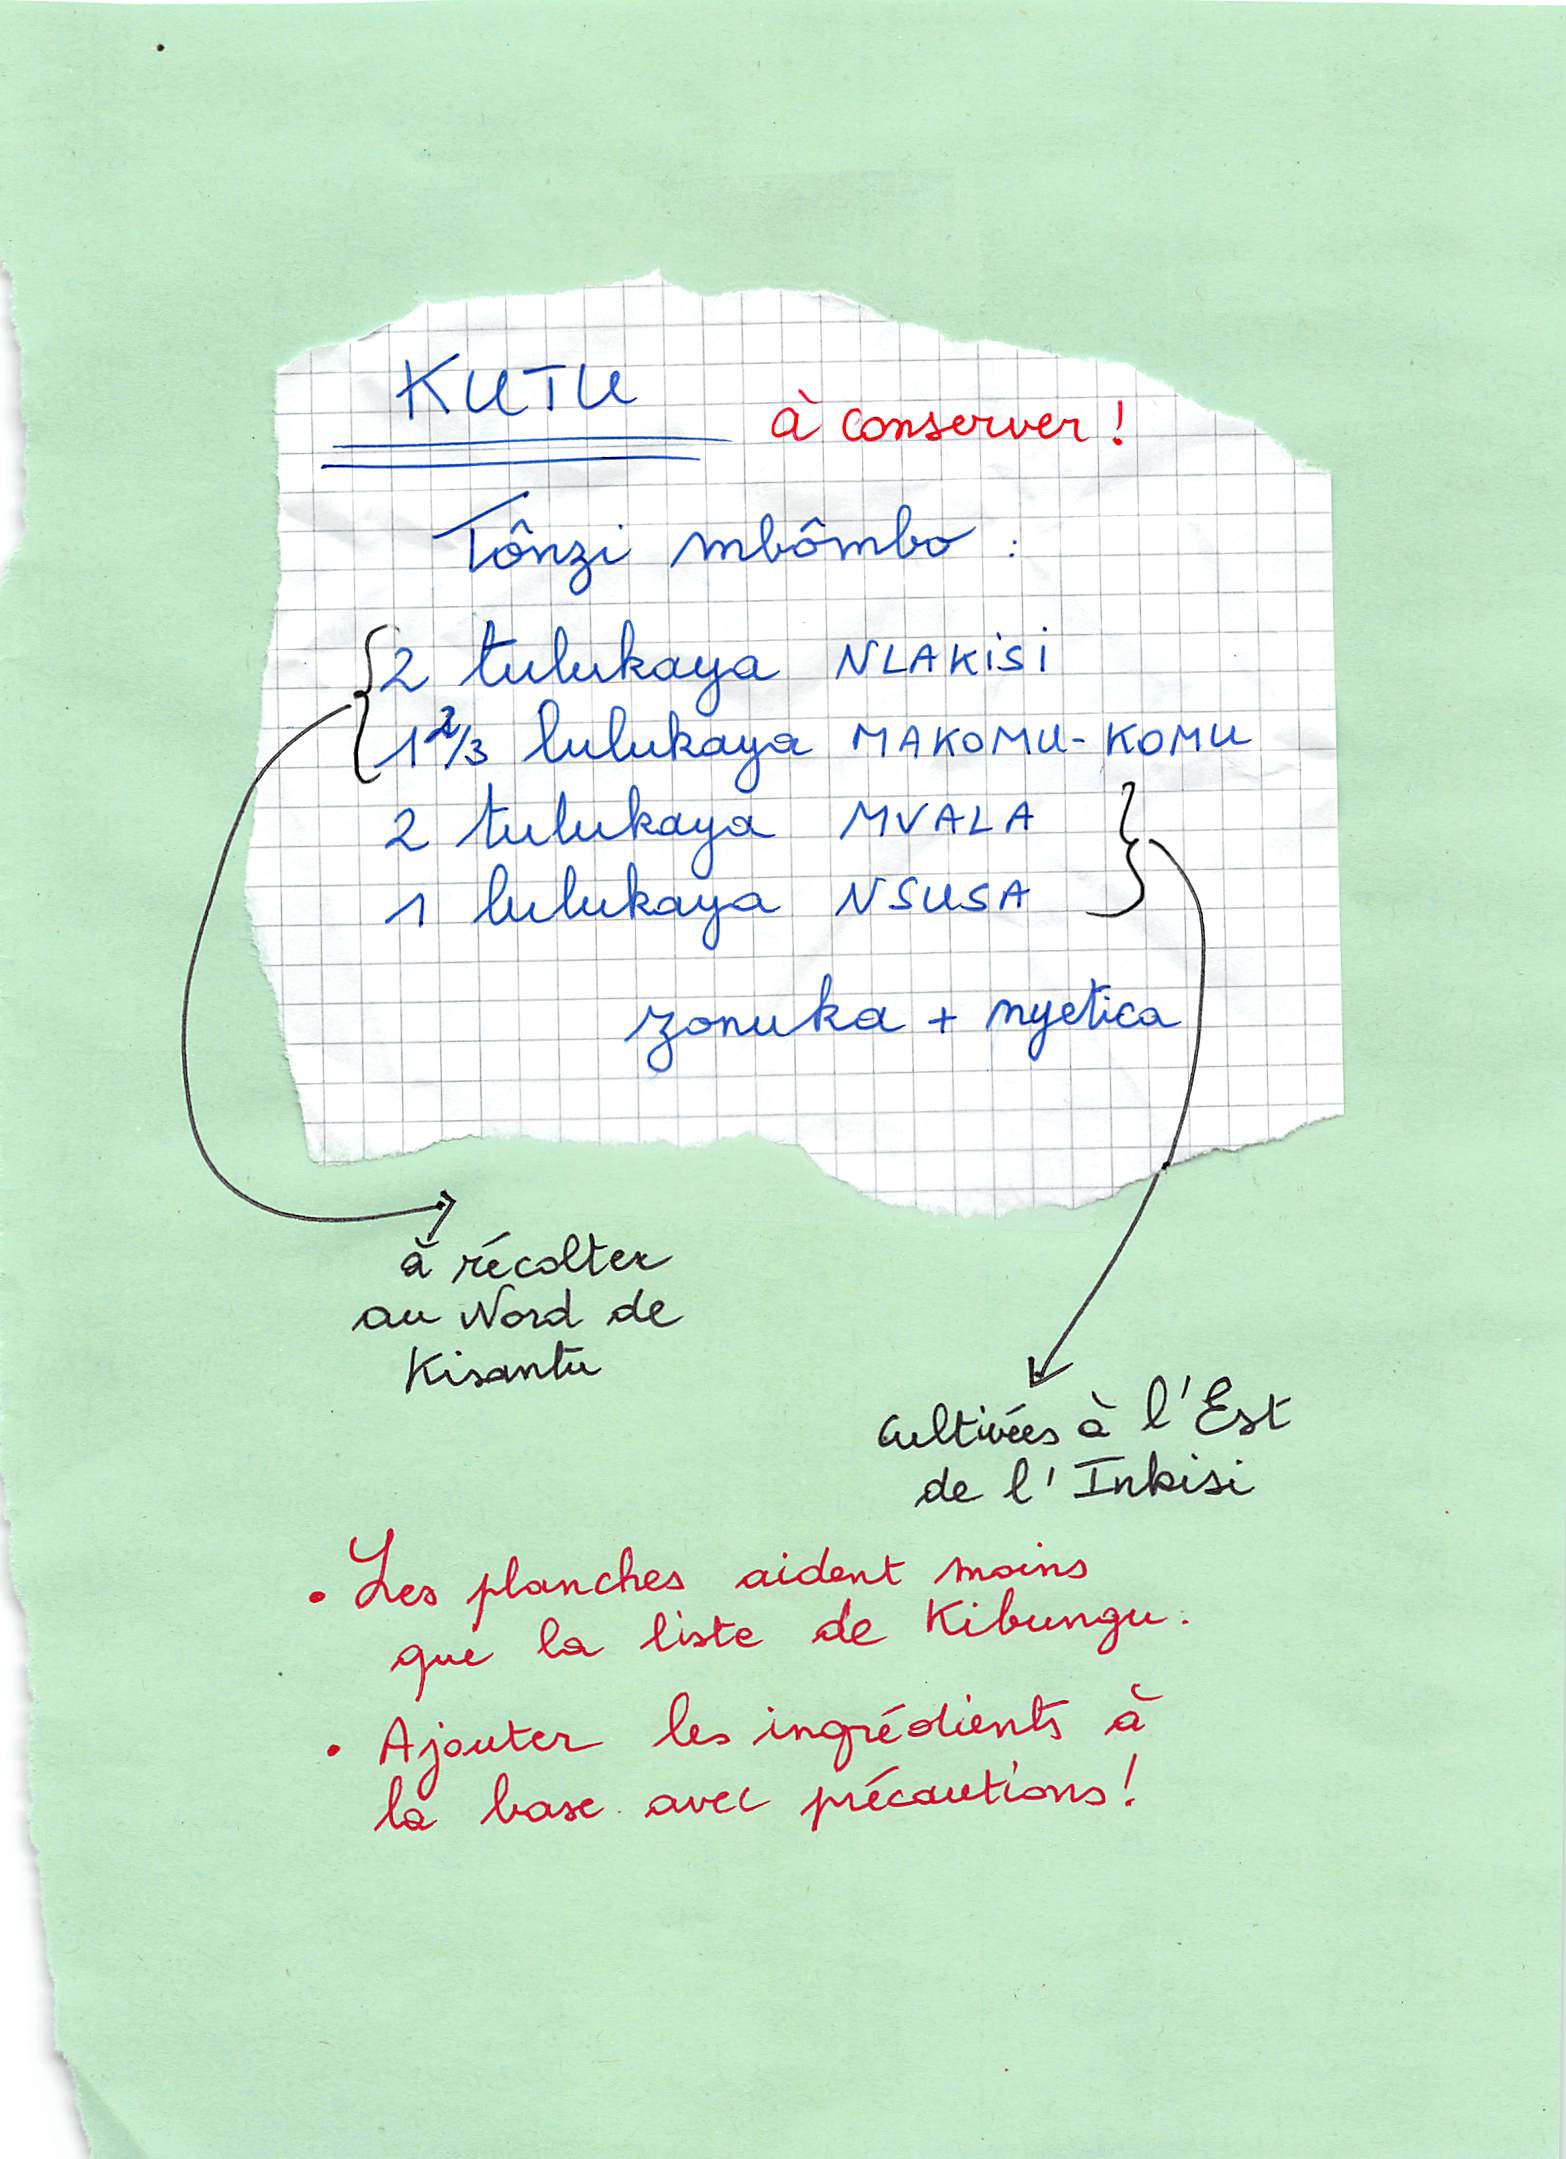 KUTU
à conserver !
Tônzi mbômbo :
2 tulukaya NLAKISI
1 2/3 lulukaya MAKOMU-KOMU
2 tulukaya MVALA
1 lulukaya NSUSA
zonuka + nyetica
à récolter
au Nord de
Kisantu
cultivées à l'Est
de l'Inkisi
• Les planches aident moins
que la liste de Kibungu.
• Ajouter les ingrédients à
la base avec précautions !